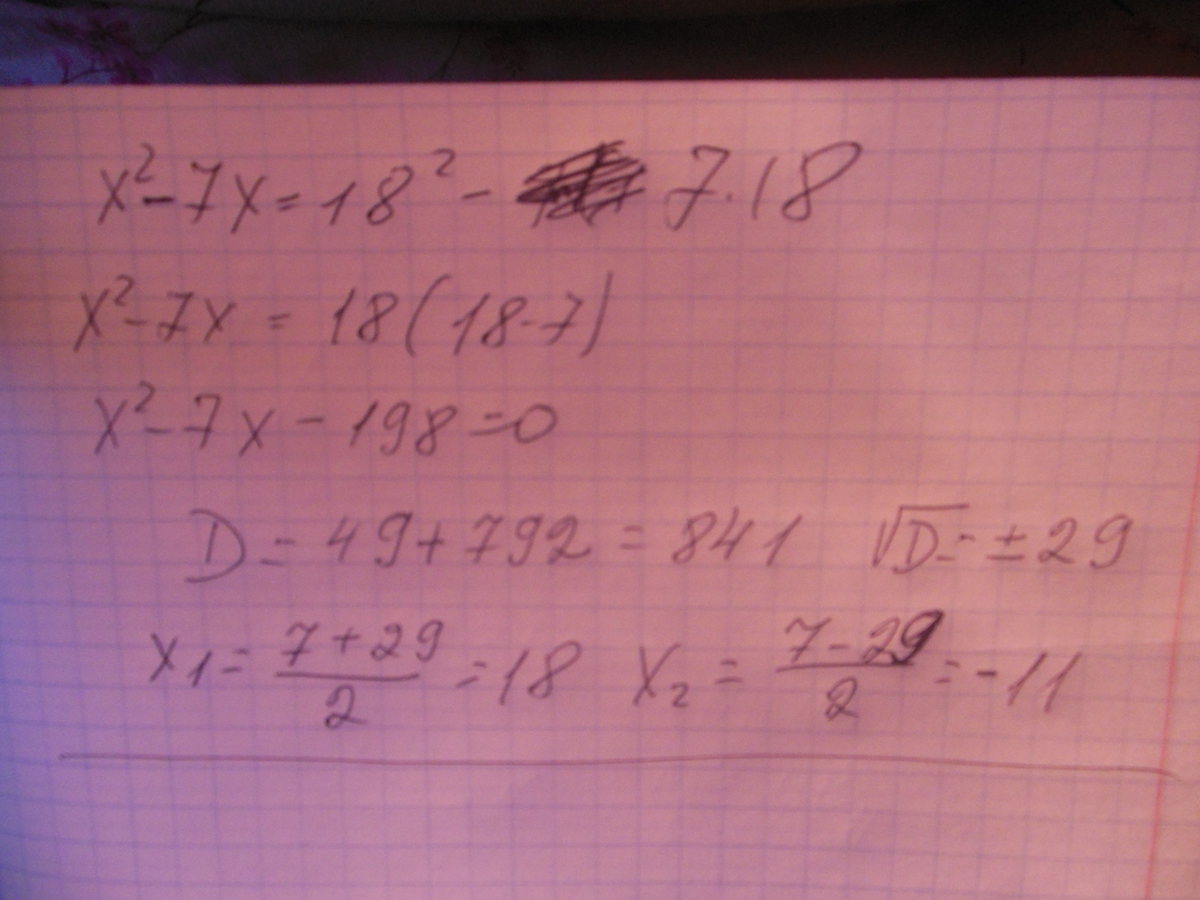 x² - 7x = 18² - 7·18
x² - 7x = 18(18-7)
x² - 7x - 198 = 0
D = 49 + 792 = 841 √D = ±29
x₁ = (7+29)/2 = 18 x₂ = (7-29)/2 = -11